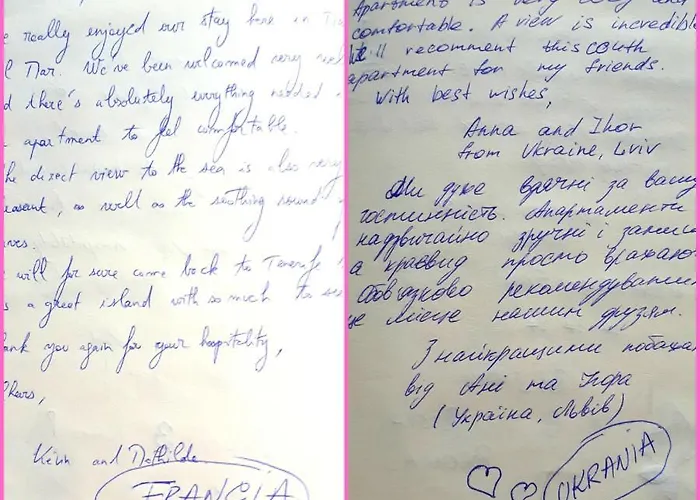 really enjoyed our stay here in
Mar. We've been welcomed very
there's absolutely everything needed
apartment to feel comfortable.
he direct view to the sea is also very
easant, as well as the soothing sound
ves.
will for sure come back to Tenerife !
a great island with so much to see
ank you again for your hospitality,
heers,
Kévin and Mathilde
FRANCIA
Apartment is very cozy and
comfortable. A view is incredible
We'll recomment this couth
apartment for my friends.
With best wishes,
Anna and Ihor
from Ukraine, Lviv
Ми дуже вдячні за вашу
гостинність. Апартаменти
надзвичайно зручні і затиш
а краєвид просто вражаю
Обов'язково рекомендуватим
це місце нашим друзям.
З найкращими побажа
від Ані та Ігора
(Україна, Львів)
UKRANIA